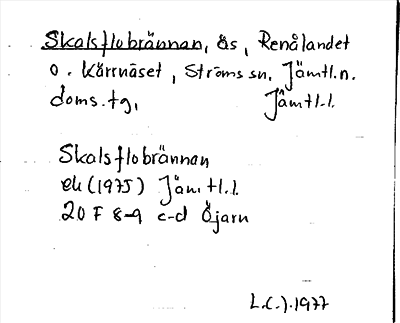 Skalsflobrännan, ås, Renålandet
o. Kärrnäset, Ströms sn, Jämtl.n.
doms.tg, Jämtl.l.
Skalsflobrännan
ek (1975) Jämtl.l.
20 F 8-9 c-d Öjarn
L.C.J. 1977